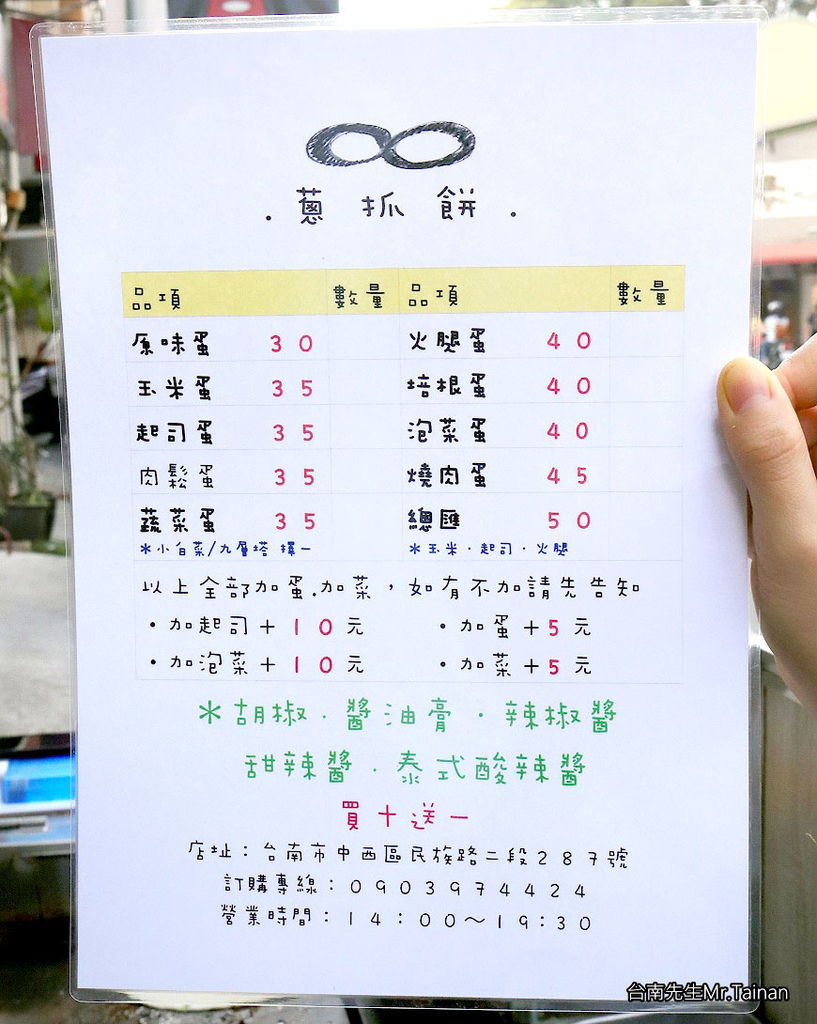 ．蔥抓餅．
品項 數量 品項 數量
原味蛋 30 火腿蛋 40
玉米蛋 35 培根蛋 40
起司蛋 35 泡菜蛋 40
肉鬆蛋 35 燒肉蛋 45
蔬菜蛋 35 總匯 50
＊小白菜/九層塔 擇一 ＊玉米．起司．火腿
以上全部加蛋.加菜，如有不加請先告知
・加起司＋10元 ・加蛋＋5元
・加泡菜＋10元 ・加菜＋5元
＊胡椒．醬油膏．辣椒醬
甜辣醬．泰式酸辣醬
買十送一
店址：台南市中西區民族路二段287號
訂購專線：0903974424
營業時間：14：00～19：30
台南先生Mr.Tainan